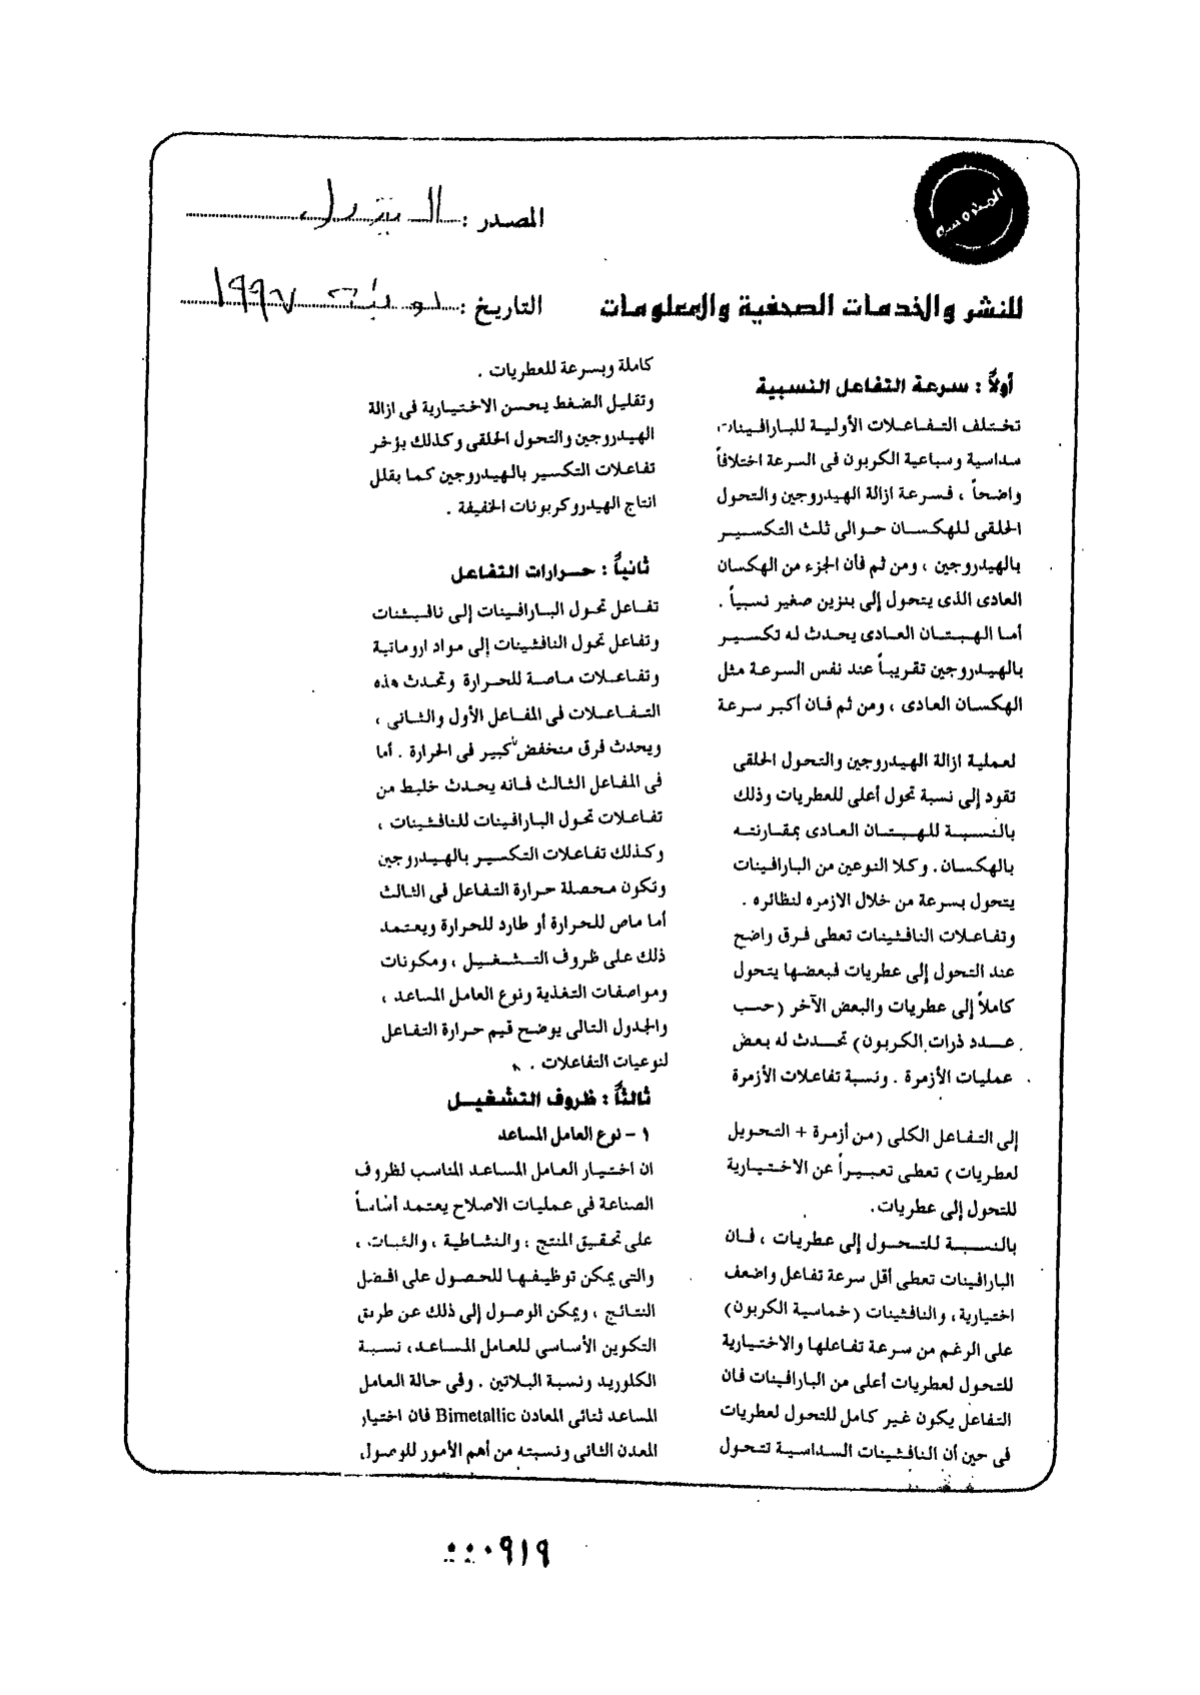 المصدر : البترول
المحروسة
للنشر والخدمات الصحفية والمعلومات
التاريخ : ١٩٩٧
أولاً : سرعة التفاعل النسبية
تختلف التفاعلات الأولية للبارافينات
سداسية وسباعية الكربون فى السرعة اختلافاً
واضحاً ، فسرعة ازالة الهيدروجين والتحول
الحلقى للهكسان حوالى ثلث التكسير
بالهيدروجين ، ومن ثم فأن الجزء من الهكسان
العادى الذى يتحول إلى بنزين صغير نسبياً .
أما الهبتان العادى يحدث له تكسير
بالهيدروجين تقريباً عند نفس السرعة مثل
الهكسان العادى ، ومن ثم فان أكبر سرعة
لعملية ازالة الهيدروجين والتحول الحلقى
تقود إلى نسبة تحول أعلى للعطريات وذلك
بالنسبة للهبتان العادى بمقارنته
بالهكسان. وكلا النوعين من البارافينات
يتحول بسرعة من خلال الازمره لنظائره .
وتفاعلات النافثينات تعطى فرق واضح
عند التحول إلى عطريات فبعضها يتحول
كاملاً إلى عطريات والبعض الآخر (حسب
عدد ذرات الكربون) تحدث له بعض
عمليات الأزمرة . ونسبة تفاعلات الأزمرة
إلى التفاعل الكلى (من أزمرة + التحويل
لعطريات) تعطى تعبيراً عن الاختيارية
للتحول إلى عطريات.
بالنسبة للتحول إلى عطريات ، فان
البارافينات تعطى أقل سرعة تفاعل واضعف
اختيارية، والنافثينات (خماسية الكربون)
على الرغم من سرعة تفاعلها والاختيارية
للتحول لعطريات أعلى من البارافينات فان
التفاعل يكون غير كامل للتحول لعطريات
فى حين أن النافثينات السداسية تتحول
كاملة وبسرعة للعطريات .
وتقليل الضغط يحسن الاختيارية فى ازالة
الهيدروجين والتحول الحلقى وكذلك يؤخر
تفاعلات التكسير بالهيدروجين كما يقلل
انتاج الهيدروكربونات الخفيفة .
ثانياً : حرارات التفاعل
تفاعل تحول البارافينات إلى نافيثنات
وتفاعل تحول النافثينات إلى مواد اروماتية
وتفاعلات ماصة للحرارة وتحدث هذه
التفاعلات فى المفاعل الأول والثانى ،
ويحدث فرق منخفض كبير فى الحرارة . أما
فى المفاعل الثالث فانه يحدث خليط من
تفاعلات تحول البارافينات للنافثينات ،
وكذلك تفاعلات التكسير بالهيدروجين
وتكون محصلة حرارة التفاعل فى الثالث
أما ماص للحرارة أو طارد للحرارة ويعتمد
ذلك على ظروف التشغيل ، ومكونات
ومواصفات التغذية ونوع العامل المساعد ،
والجدول التالى يوضح قيم حرارة التفاعل
لنوعيات التفاعلات .
ثالثاً : ظروف التشغيل
١ - نوع العامل المساعد
ان اختيار العامل المساعد المناسب لظروف
الصناعة فى عمليات الاصلاح يعتمد أساساً
على تحقيق المنتج ، والنشاطية ، والثبات ،
والتى يمكن توظيفها للحصول على افضل
النتائج ، ويمكن الوصول إلى ذلك عن طريق
التكوين الأساسى للعامل المساعد، نسبة
الكلوريد ونسبة البلاتين . وفى حالة العامل
المساعد ثنائى المعادن Bimetallic فان اختيار
المعدن الثانى ونسبته من أهم الأمور للوصول